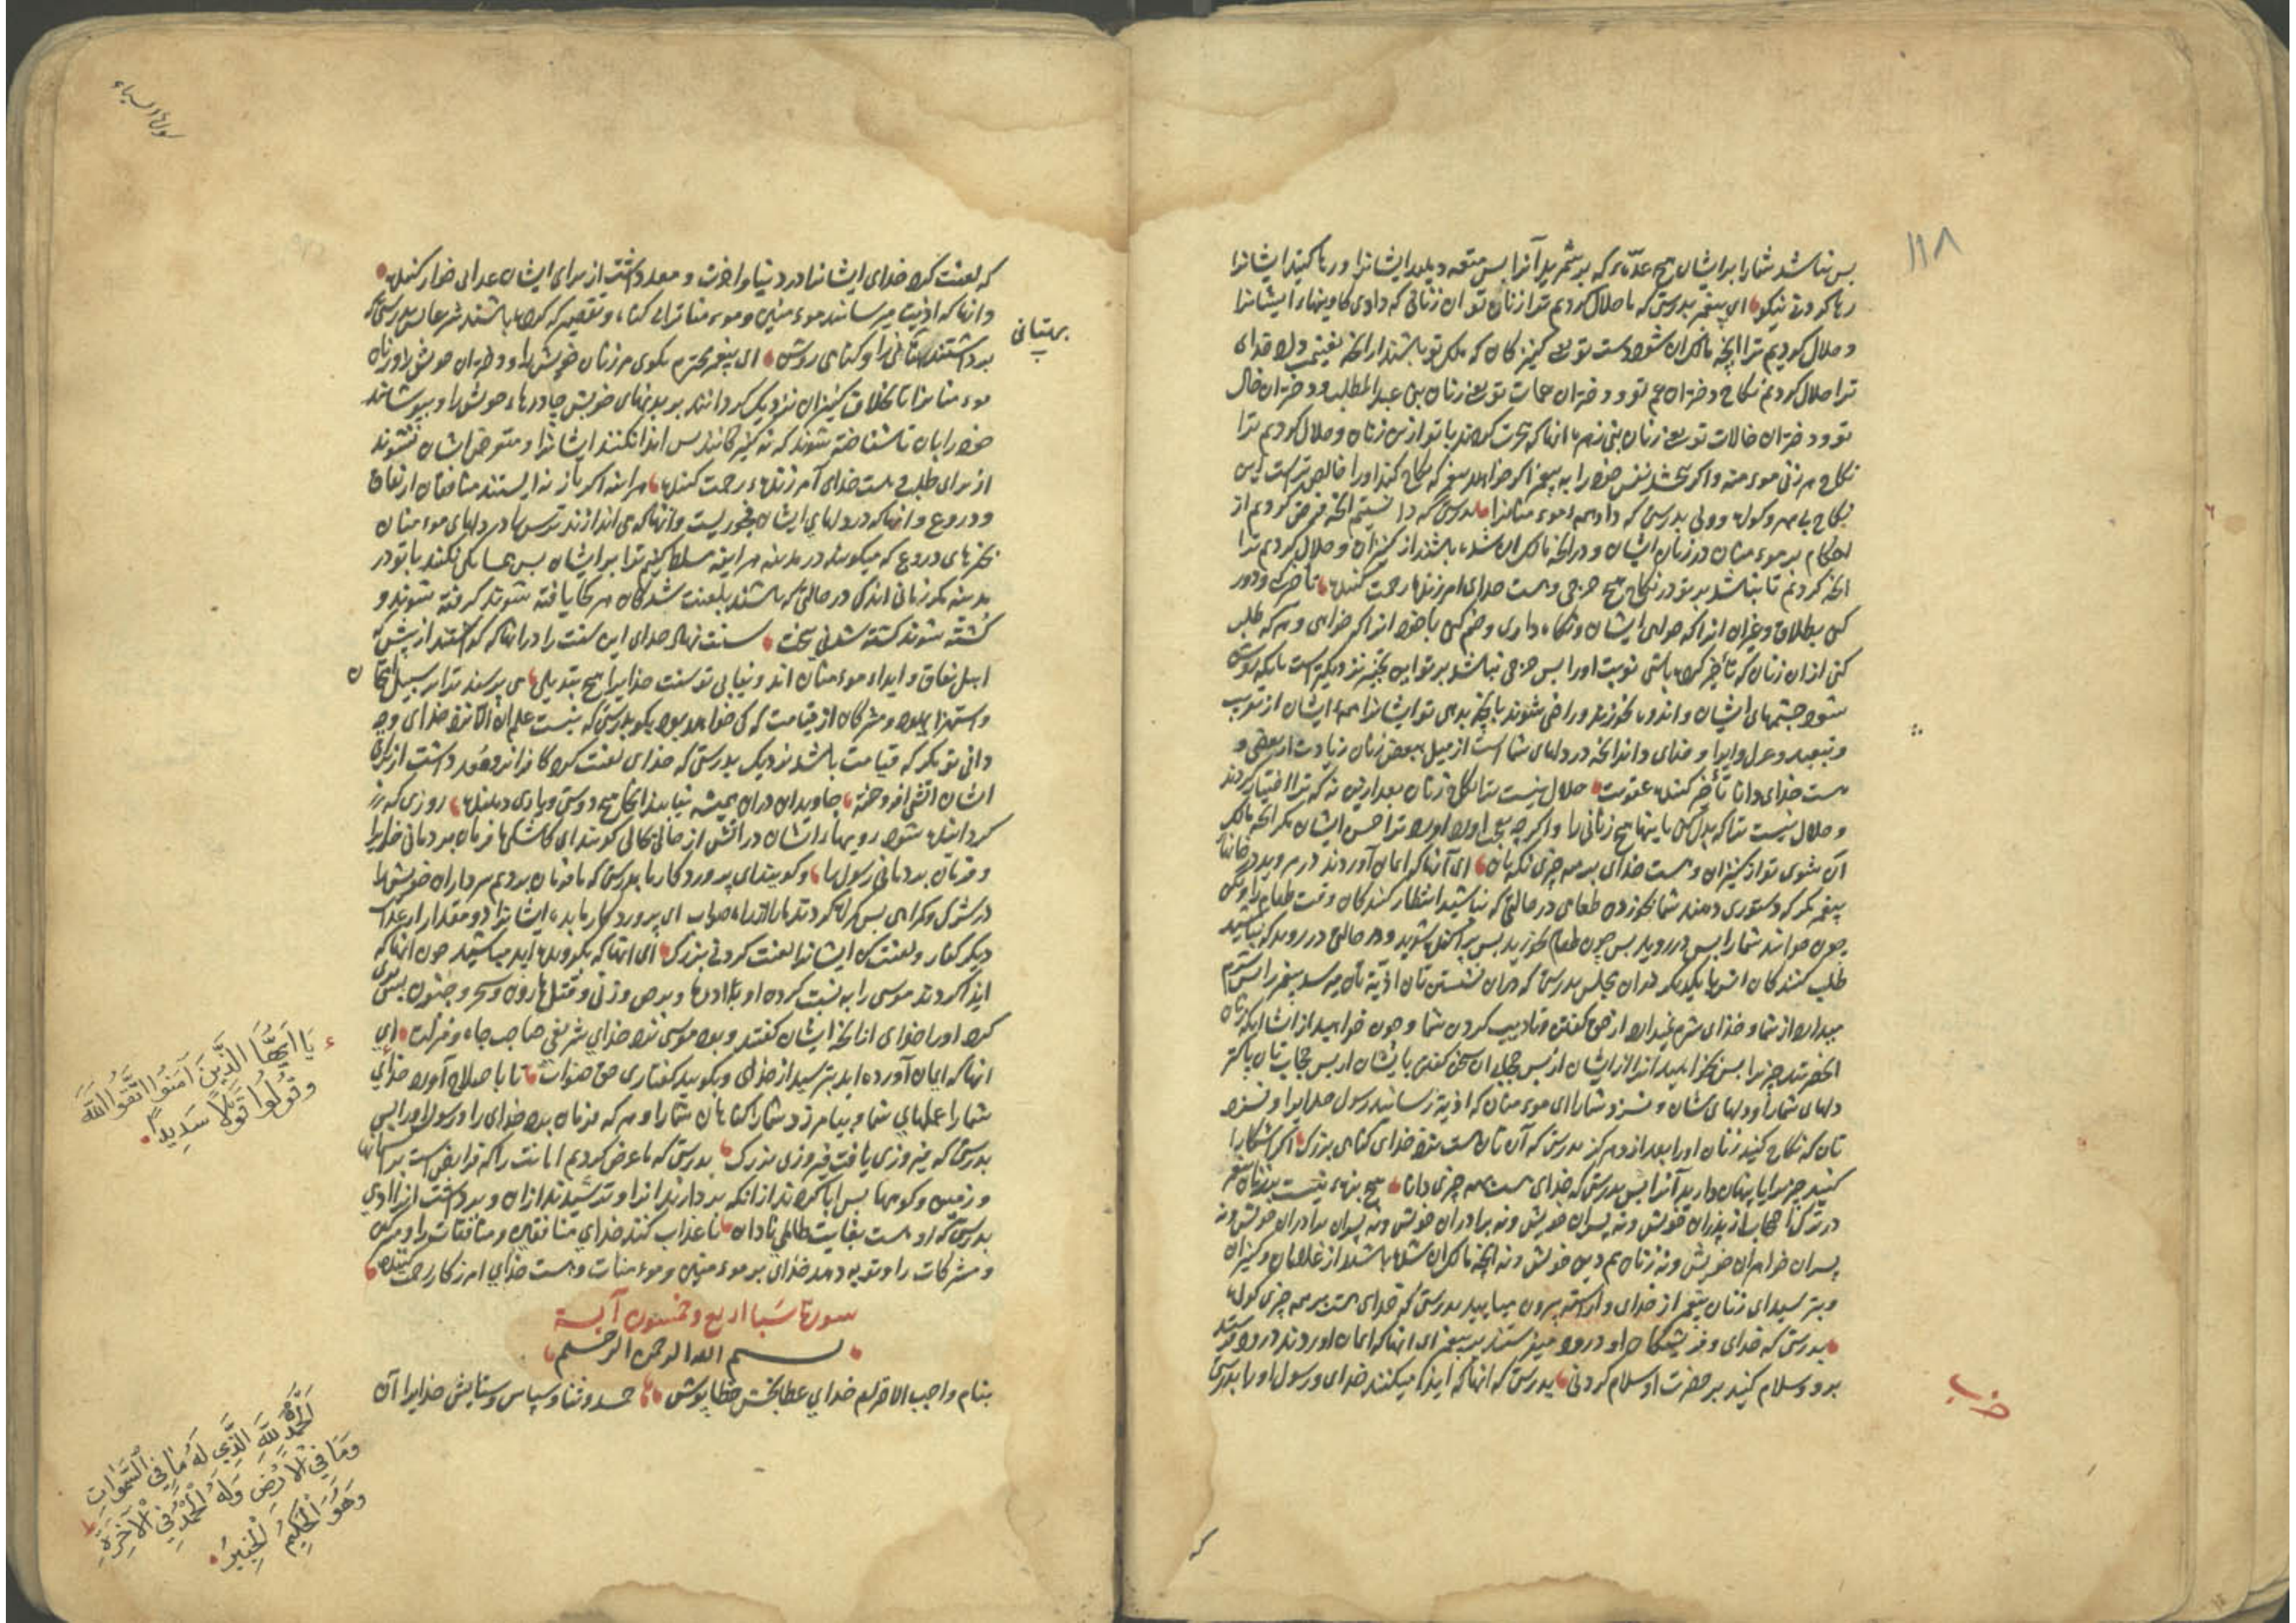 ١١٨
بس نباشد شمارا برایشان هیچ عدّهٔ که بر شمرید آنرا بس متعه دهید ایشانرا و رها کنید ایشانرا
رها کردنی نیکو ای پیغمبر بدرستی که ما حلال کردیم ترا زنان تو ان زنانی که دادی کاوینهاء ایشانرا
و حلال کردیم ترا انچه مالک ان شود دست تو یعنی کنیزکان که ملک تو باشند از انچه بغنیمت داد خدای
ترا حلال کردیم نکاح دختران عم تو و دختران عمات تو یعنی زنان بنی عبد المطلب و دختران خال
تو و دختران خالات تو یعنی زنان بنی زهره انها که هجرت کردند با تو ازین زنان و حلال کردیم ترا
نکاح هر زنی موءمنه و اکر بخشد نفس خود را به پیغمبر اکر خواهد پیغمبر که نکاح کند اورا خالص تراست این
نکاح بی مهر و کواه و ولی بدرستی که دانسته ایم انچه فرض کردیم از
احکام بر موءمنان در زنان ایشان و در انچه مالک ان شده باشند از کنیزان و حلال کردیم ترا
انچه کردیم تا نباشد بر تو در نکاح هیچ حرجی و هست خدای امرزنده رحمت کننده تأخیر و دور
کنی بطلاق و غیران انرا که خواهی ایشان و نکاه داری و ضم کنی با خود انرا که خواهی و هر که طلب
کنی ازان زنان که تأخیر کرده باشی نوبت اورا بس حرجی نباشد بر تو این تخییر نزدیکتر است بانکه روشن
شود چشمهای ایشان و اندوه نخورند و راضی شوند بانچه بدهی تو ایشانرا همه ایشان از تقریب
و تبعید و عزل و ایوا و خدای داند انچه در دلهای شما است از میل ببعض زنان زیادت از بعضی و
هست خدای دانا تأخیر کننده عقوبت حلال نیست ترا نکاح زنان بعد ازین نه که ترا اختیار کردند
و حلال نیست ترا که بدل کنی باینها هیچ زنانی را و اکرچه بعجب اورد ترا حسن ایشان مکر انچه مالک
آن شوی تو از کنیزان و هست خدای بر همه چیزی نکهبان ای آنها که ایمان آوردند در مروید در خانهاء
پیغمبر مکر که دستوری دهند شما بخوردن طعامی در حالتی که نباشید انتظار کنندکان وقت طعام را ولکن
چون خوانند شمارا بس در روید بس چون طعام بخورید بس پراکنده شوید و در حالتی در روید که نباشید
طلب کنندکان انس با یکدیکر دران مجلس بدرستی که دران نشستن تان اذیّة تان میرسد پیغمبر را بس شرم
میدارد از شما و خدای شرم نمیدارد از حق کفتن و تادیب کردن شما و چون خواهید از ایشان ای که زنان
انحضرتند چیزیرا بس بخواهید انرا از ایشان از پس حجاب ان سخن کفتن با یشان از پس حجاب تان پاکتر
دلهای شمارا و دلهای شان و نسزد شمارا ای موءمنان که اذیّة رسانید رسول خدایرا و نسزد
تان که نکاح کنید زنان اورا بعد از وی هرکز بدرستی که آن تان هست نزد خدای کناهی بزرک اکر اشکارا
کنید چیزیرا یا پنهان دارید آنرا بس بدرستی که خدای هست بهمه چیزی دانا هیچ بزه نیست بر زنان پیغمبر
در ترک حجاب از پدران خویش و نه پسران خویش و نه برادران خویش و نه پسران برادران خویش و نه
پسران خواهران خویش و نه زنان هم دین خویش و نه انچه مالک ان شده باشد از غلامان و کنیزان
و بترسید ای زنان پیغمبر از خدای و اراسته بیرون میایید بدرستی که خدای هست بر همه چیزی کواه
بدرستی که خدای و فریشتکان او درود میفرستند بر پیغمبر ای انها که ایمان اوردند درود فرستید
بر او و سلام کنید بر حضرت او سلام کردنی بدرستی که انها که ایذا میکنند خدای و رسول او را بدرستی
که
که لعنت کرد خدای ایشانرا در دنیا و اخرت و معد داشت از برای ایشان عذابی خوار کننده
و انها که اذیّت میرسانند موءمنین و موءمنات را بی کناه و تقصیر که کرده باشند شرعا بس بدرستی که
برداشتند بهتانی را و کناهی روشن ای پیغمبر محترم بکوی مر زنان خویش را و دختران خویش را و زنان
بهتانی
موءمنانرا تا بخلاف کنیزان نزدیک کردانند بر بدنهای خویش چادرهاء خویش را و بپوشانند
خود را بان تا شناخته شوند که نه کنیزکانند بس ایذا نکنند ایشانرا و متعرض ایشان نشوند
از برای طلب و هست خدای آمرزنده رحمت کننده هراینه اکر باز نه ایستند منافقان از نفاق
و دروغ و انها که در دلهای ایشان فجوریست و انها که می اندازند ترسها در دلهای موءمنان
بخبرهای دروغ که میکویند در مدینه هراینه مسلط کنیم ترا بر ایشان بس همسایکی نکنند با تو در
مدینه مکر زمانی اندکی در حالتی که باشند بلعنت شدکان هر کجا یافته شوند کرفته شوند و
کشته شوند کشته شدنی سخت سنت نهاد خدای این سنت را در انها که کذاشتند از پیش که
اهل نفاق و ایذاء موءمنان اند و نیابی تو سنت خدایرا هیچ تبدیلی می پرسند ترا بر سبیل امتحان
و استهزا یهود و مشرکان از قیامت که کی خواهد بود بکو بدرستی که نیست علم ان الّا نزد خدای و چه
دانی تو مکر که قیامت باشد نزدیک بدرستی که خدای لعنت کرد کافرانرا و معد داشت از برای
ایشان اتشی افروخته جاویدان دران همیشه نیابند انجا هیچ دوستی و یاری دهنده روزی که
کردانیده شود رویهاء ایشان در اتش از حالی بحالی کویند ای کاشکی ما فرمان بردمانی خدایرا
و فرمان بردمانی رسول را و کویند ای پروردکار ما بدرستی که ما فرمان بردیم سرداران خویش را
در شرک و کمراهی بس کمراه کردند مارا از راه صواب ای پروردکار ما بده ایشانرا دو مقدار از عذاب
دیکر کفار و لعنت کن ایشانرا لعنت کردنی بزرک ای انها که بکرویده اید مباشید چون انها که
ایذا کردند موسی را به نسبت کرده او با ادره و برص و زنی و قتل هارون و سحر و جنون بس بری
کرد اورا خدای از انچه ایشان کفتند و بود موسی نزد خدای شریفی صاحب جاه و منزلت ای
انها که ایمان آورده اید بترسید از خدای و بکویید کفتاری حق صواب تا باصلاح آورد خدای
یَا اَیُّهَا الَّذِینَ آمَنُوا اتَّقُوا اللّٰهَ
وَقُولُوا قَوْلًا سَدِیدًا
شمارا عملهای شما و بیامرزد شمارا کناهان شمارا و هر که فرمان برد خدای را و رسول اورا بس
بدرستی که فیروزی یافت فیروزی بزرک بدرستی که ما عرض کردیم امانت را که فرایض است بر اسمانها
و زمین و کوهها بس ابا کردند از انکه بردارند انرا و ترسیدند ازان و برداشت انرا ادمی
بدرستی که او هست بغایت ظالمی نادان تا عذاب کند خدای منافقین و منافقات را و مشرکین
و مشرکات را و توبه دهد خدای بر موءمنین و موءمنات و هست خدای امرزکار رحمت کننده
سورة سَبا اربع و خمسون آیة
بسم الله الرحمن الرحیم
بنام واجب الاحترام خدای عطابخش خطاپوش حمد و ثنا و سپاس و ستایش خدایرا آن
اَلْحَمْدُ لِلّٰهِ الَّذِی لَهُ مَا فِی السَّمٰوَاتِ
وَمَا فِی الْاَرْضِ وَلَهُ الْحَمْدُ فِی الْآخِرَةِ
وَهُوَ الْحَکِیمُ الْخَبِیرُ